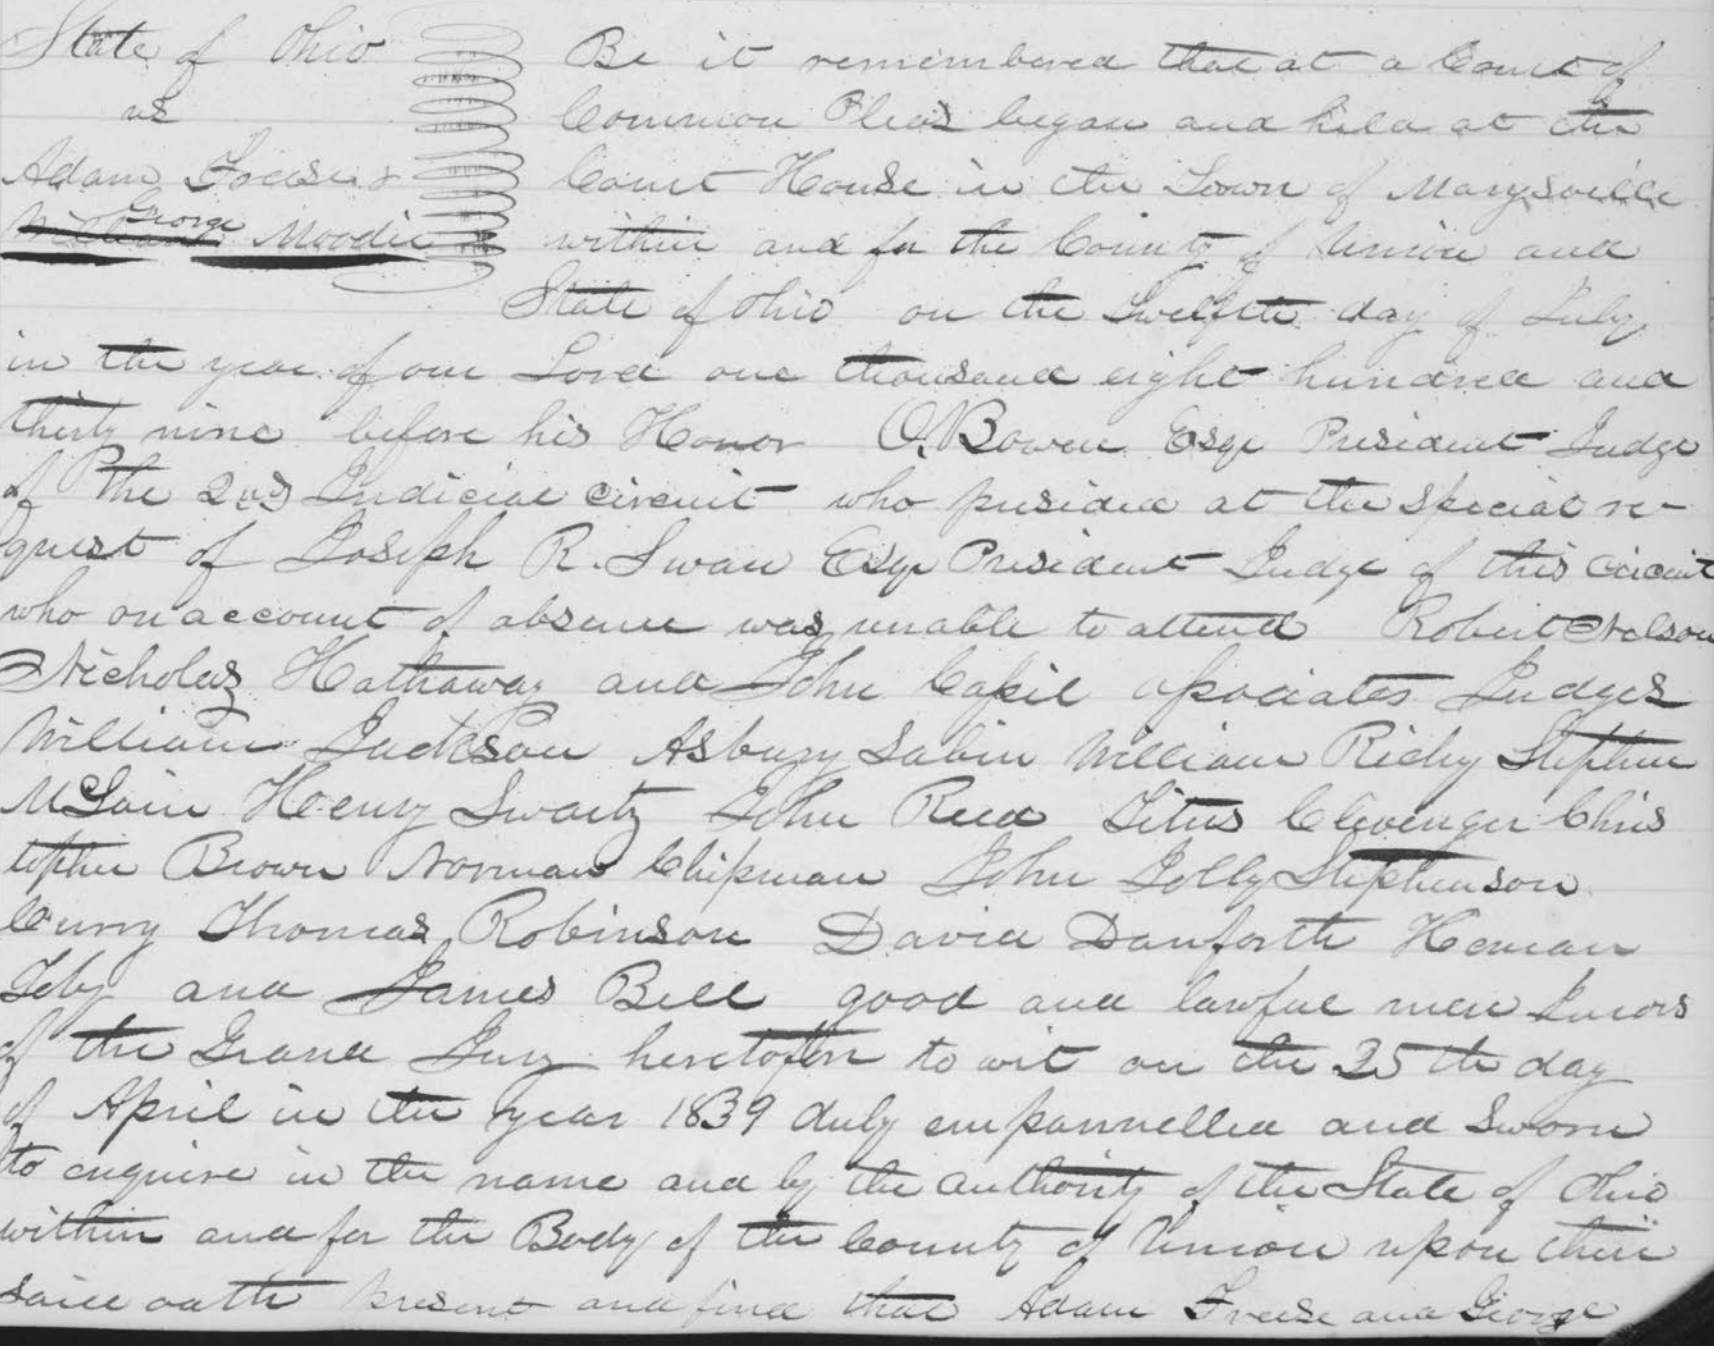 State of Ohio
vs
Adam Freese &
William George Moodie
Be it remembered that at a Court of
Common Pleas began and held at the
Court House in the Town of Marysville
within and for the County of Union and
State of Ohio on the Twelfth day of July
in the year of our Lord one thousand eight hundred and
thirty nine before his Honor O. Bowen Esqr President Judge
of the 2nd Judicial circuit who presided at the special re-
quest of Joseph R. Swan Esqr President Judge of this circuit
who on account of absence was unable to attend Robert Nelson
Nicholas Hathaway and John Capil associates Judges
William Jackson Asbury Sabin William Richy Stephen
McLain Henry Swartz John Reed Titus Clevenger Chris
topher Brown Norman Chipman John Jolly Stephenson
Curry Thomas Robinson David Danforth Heman
and James Bell good and lawful men Jurors
of the Grand Jury heretofore to wit on the 25th day
of April in the year 1839 duly empannelled and Sworn
to enquire in the name and by the authority of the State of Ohio
within and for the Body of the County of Union upon their
said oath present and find that Adam Freese and George